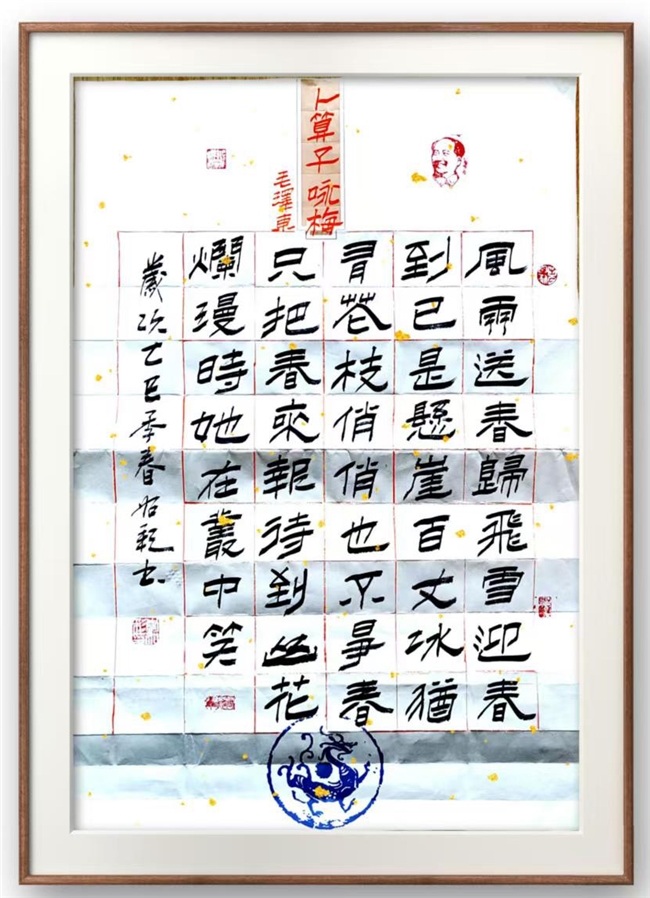 卜算子咏梅
毛澤東
風雨送春歸飛雪迎春
到已是懸崖百丈冰猶
有花枝俏俏也不爭春
只把春來報待到山花
爛漫時她在叢中笑
歲次乙巳季春书